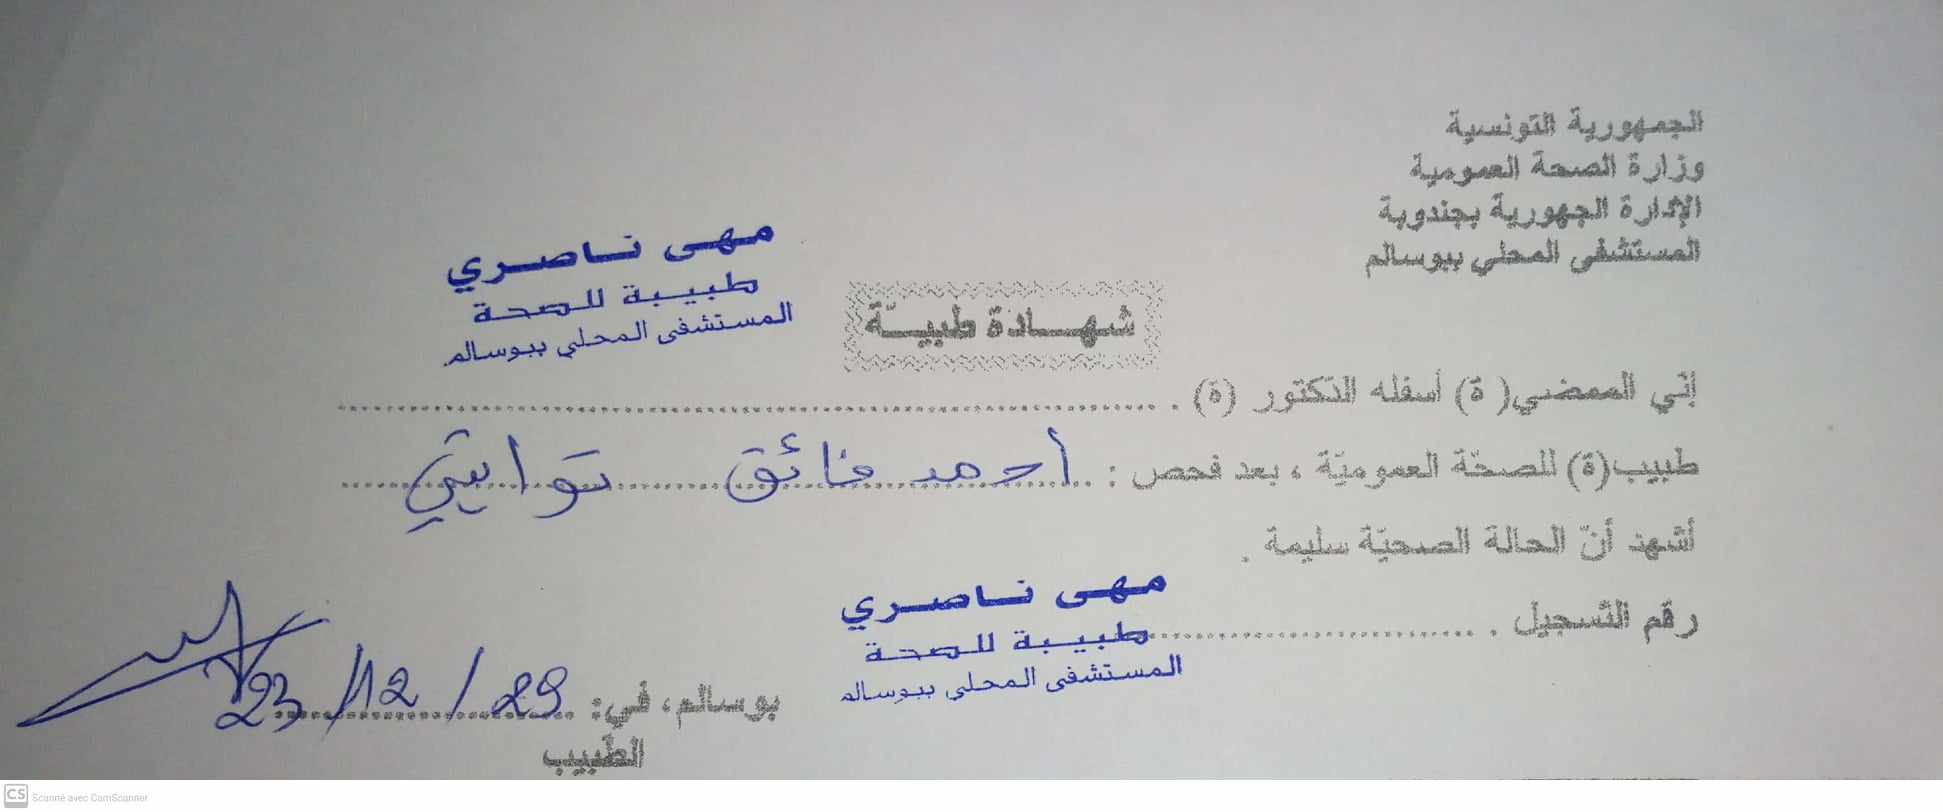 الجمهورية التونسية
وزارة الصحة العمومية
الإدارة الجهورية بجندوبة
المستشفى المحلي ببوسالم
مهى ناصري
طبيبة للصحة
المستشفى المحلي ببوسالم
شهادة طبيّة
إنّي الممضي( ة) أسفله الدكتور (ة) .
طبيب(ة) للصحّة العموميّة ، بعد فحص : أحمد فائق تواتي
أشهد أنّ الحالة الصحيّة سليمة .
رقم التّسجيل .
مهى ناصري
طبيبة للصحة
المستشفى المحلي ببوسالم
بوسالم، في: 23/12/29
الطبيب
CS Scanné avec CamScanner